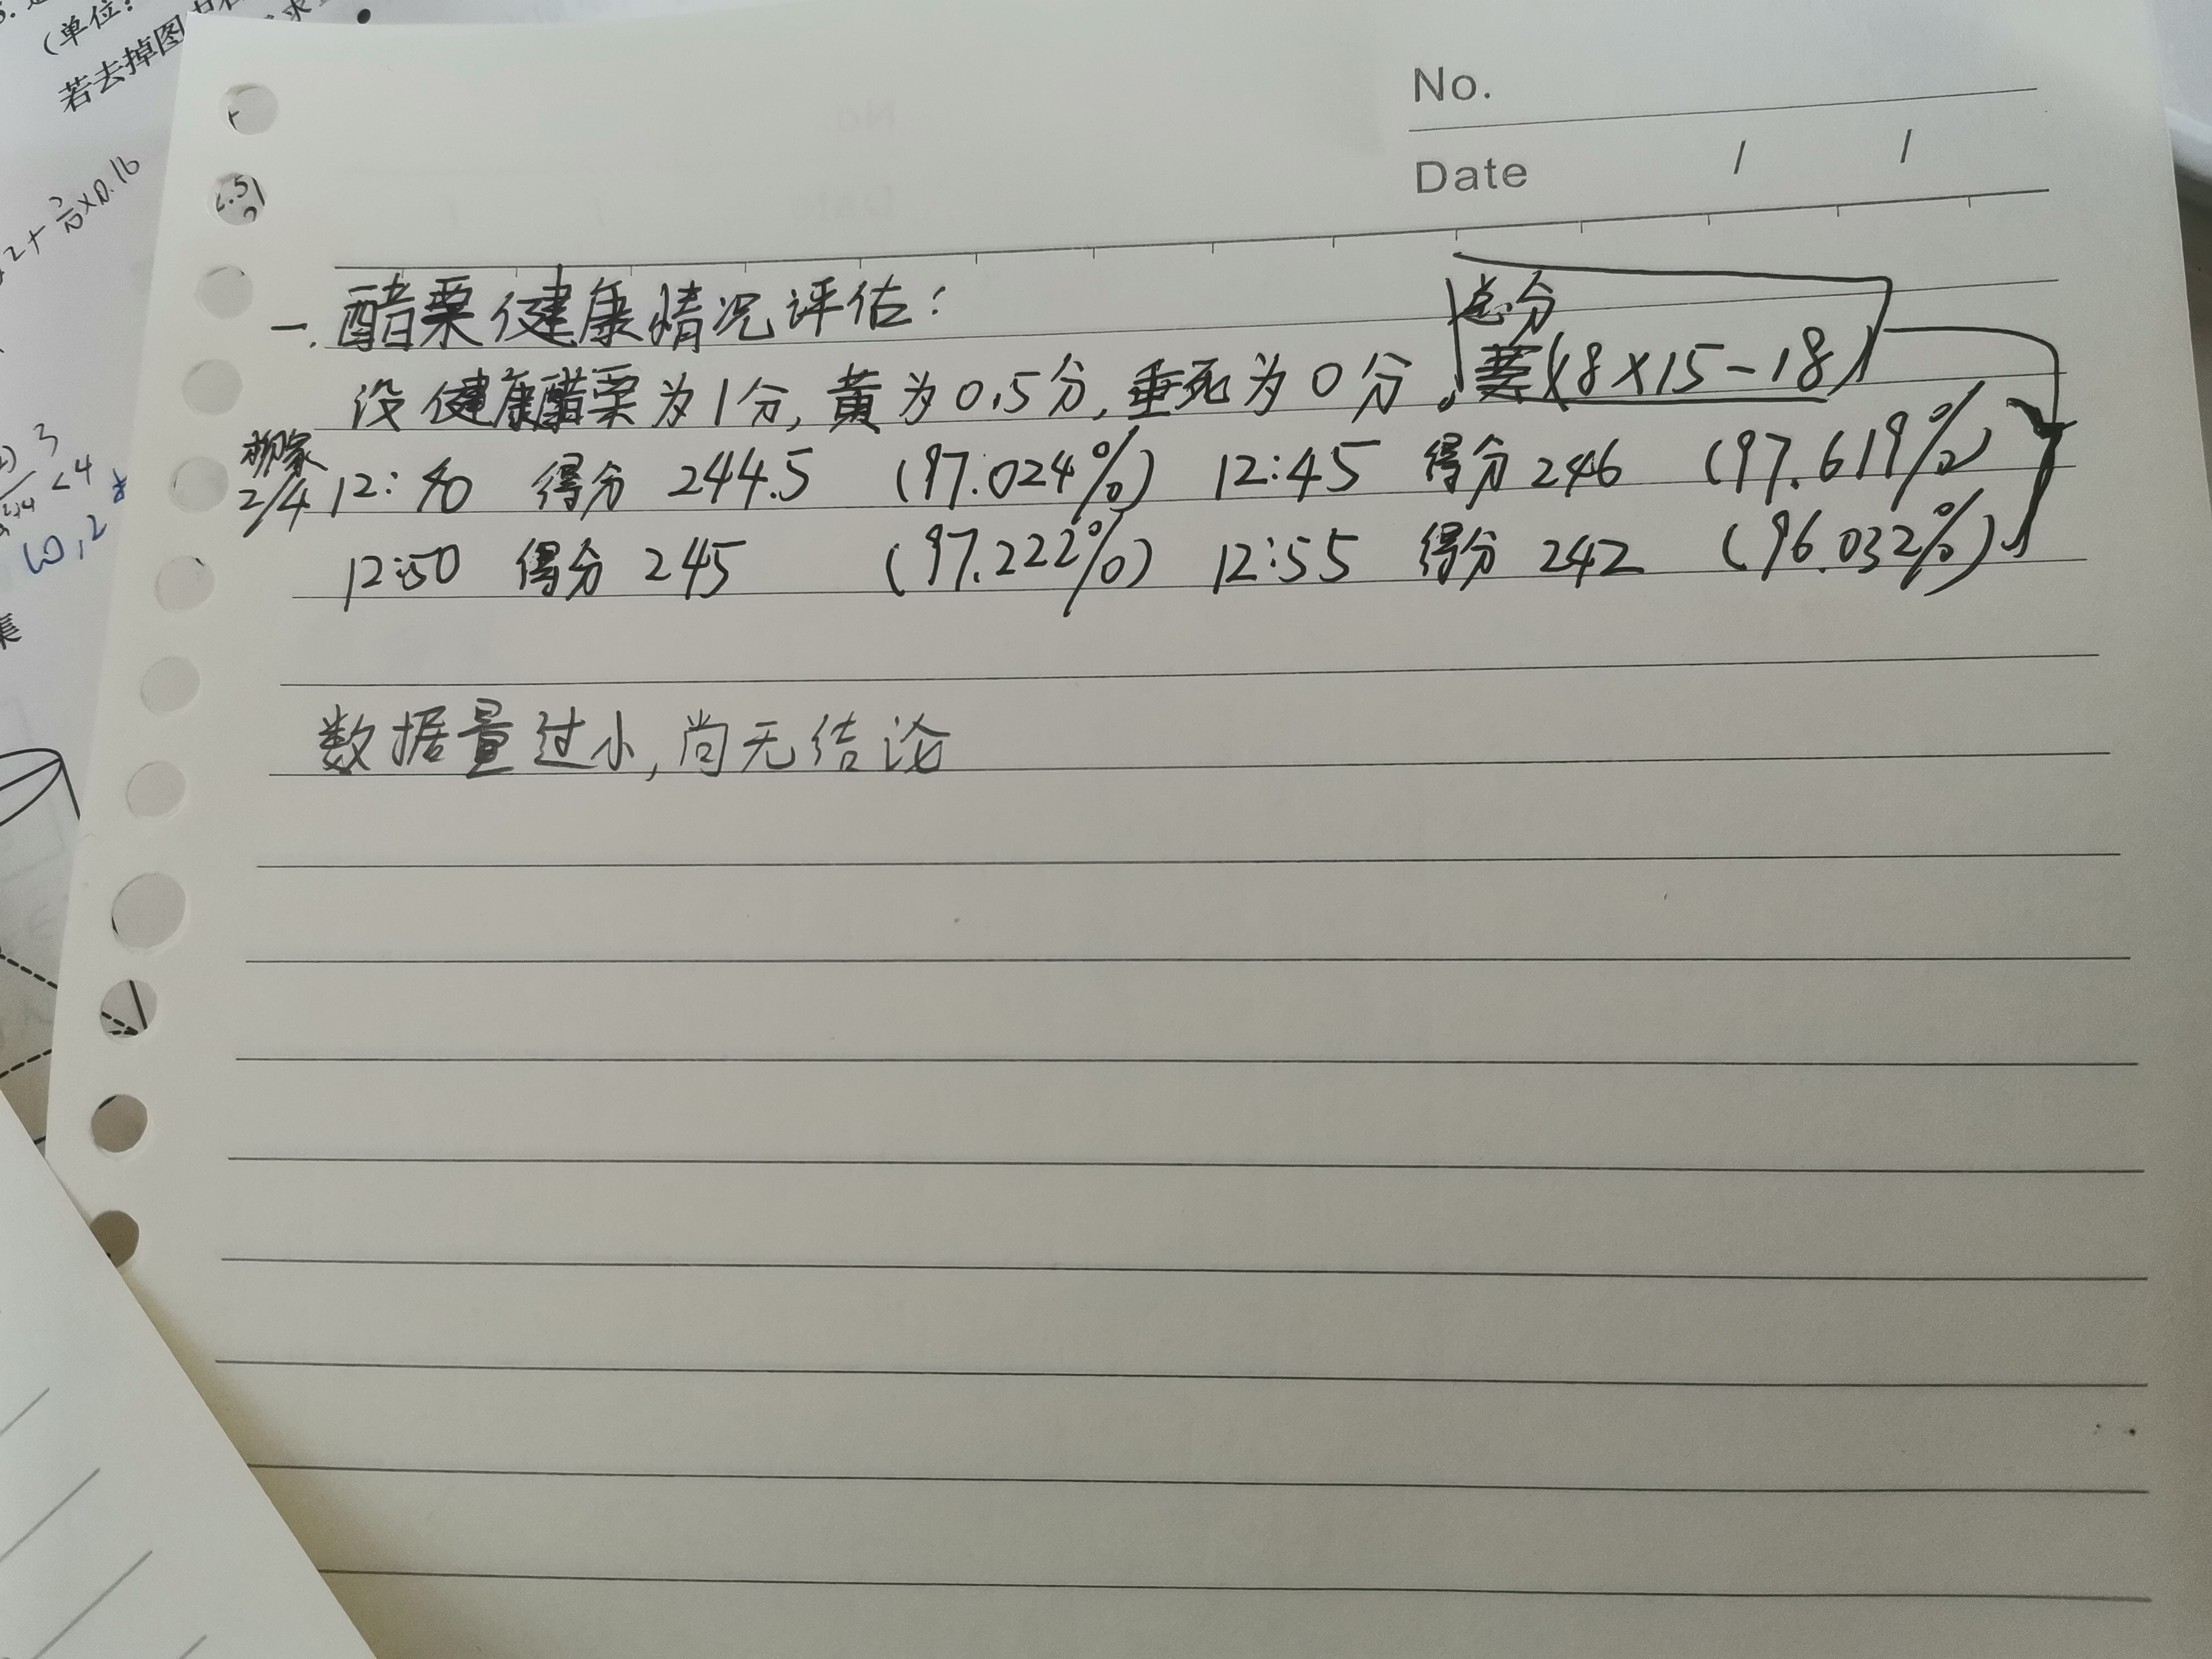 (单位:
若去掉图
No.
Date / /
一.醋栗健康情况评估:
总分
没健康醋栗为1分,黄为0.5分,垂死为0分。(18×15-18)
2/4 12:40 得分 244.5 (97.024%) 12:45 得分 246 (97.619%)
12:50 得分 245 (97.222%) 12:55 得分 242 (96.032%)
数据量过小,尚无结论